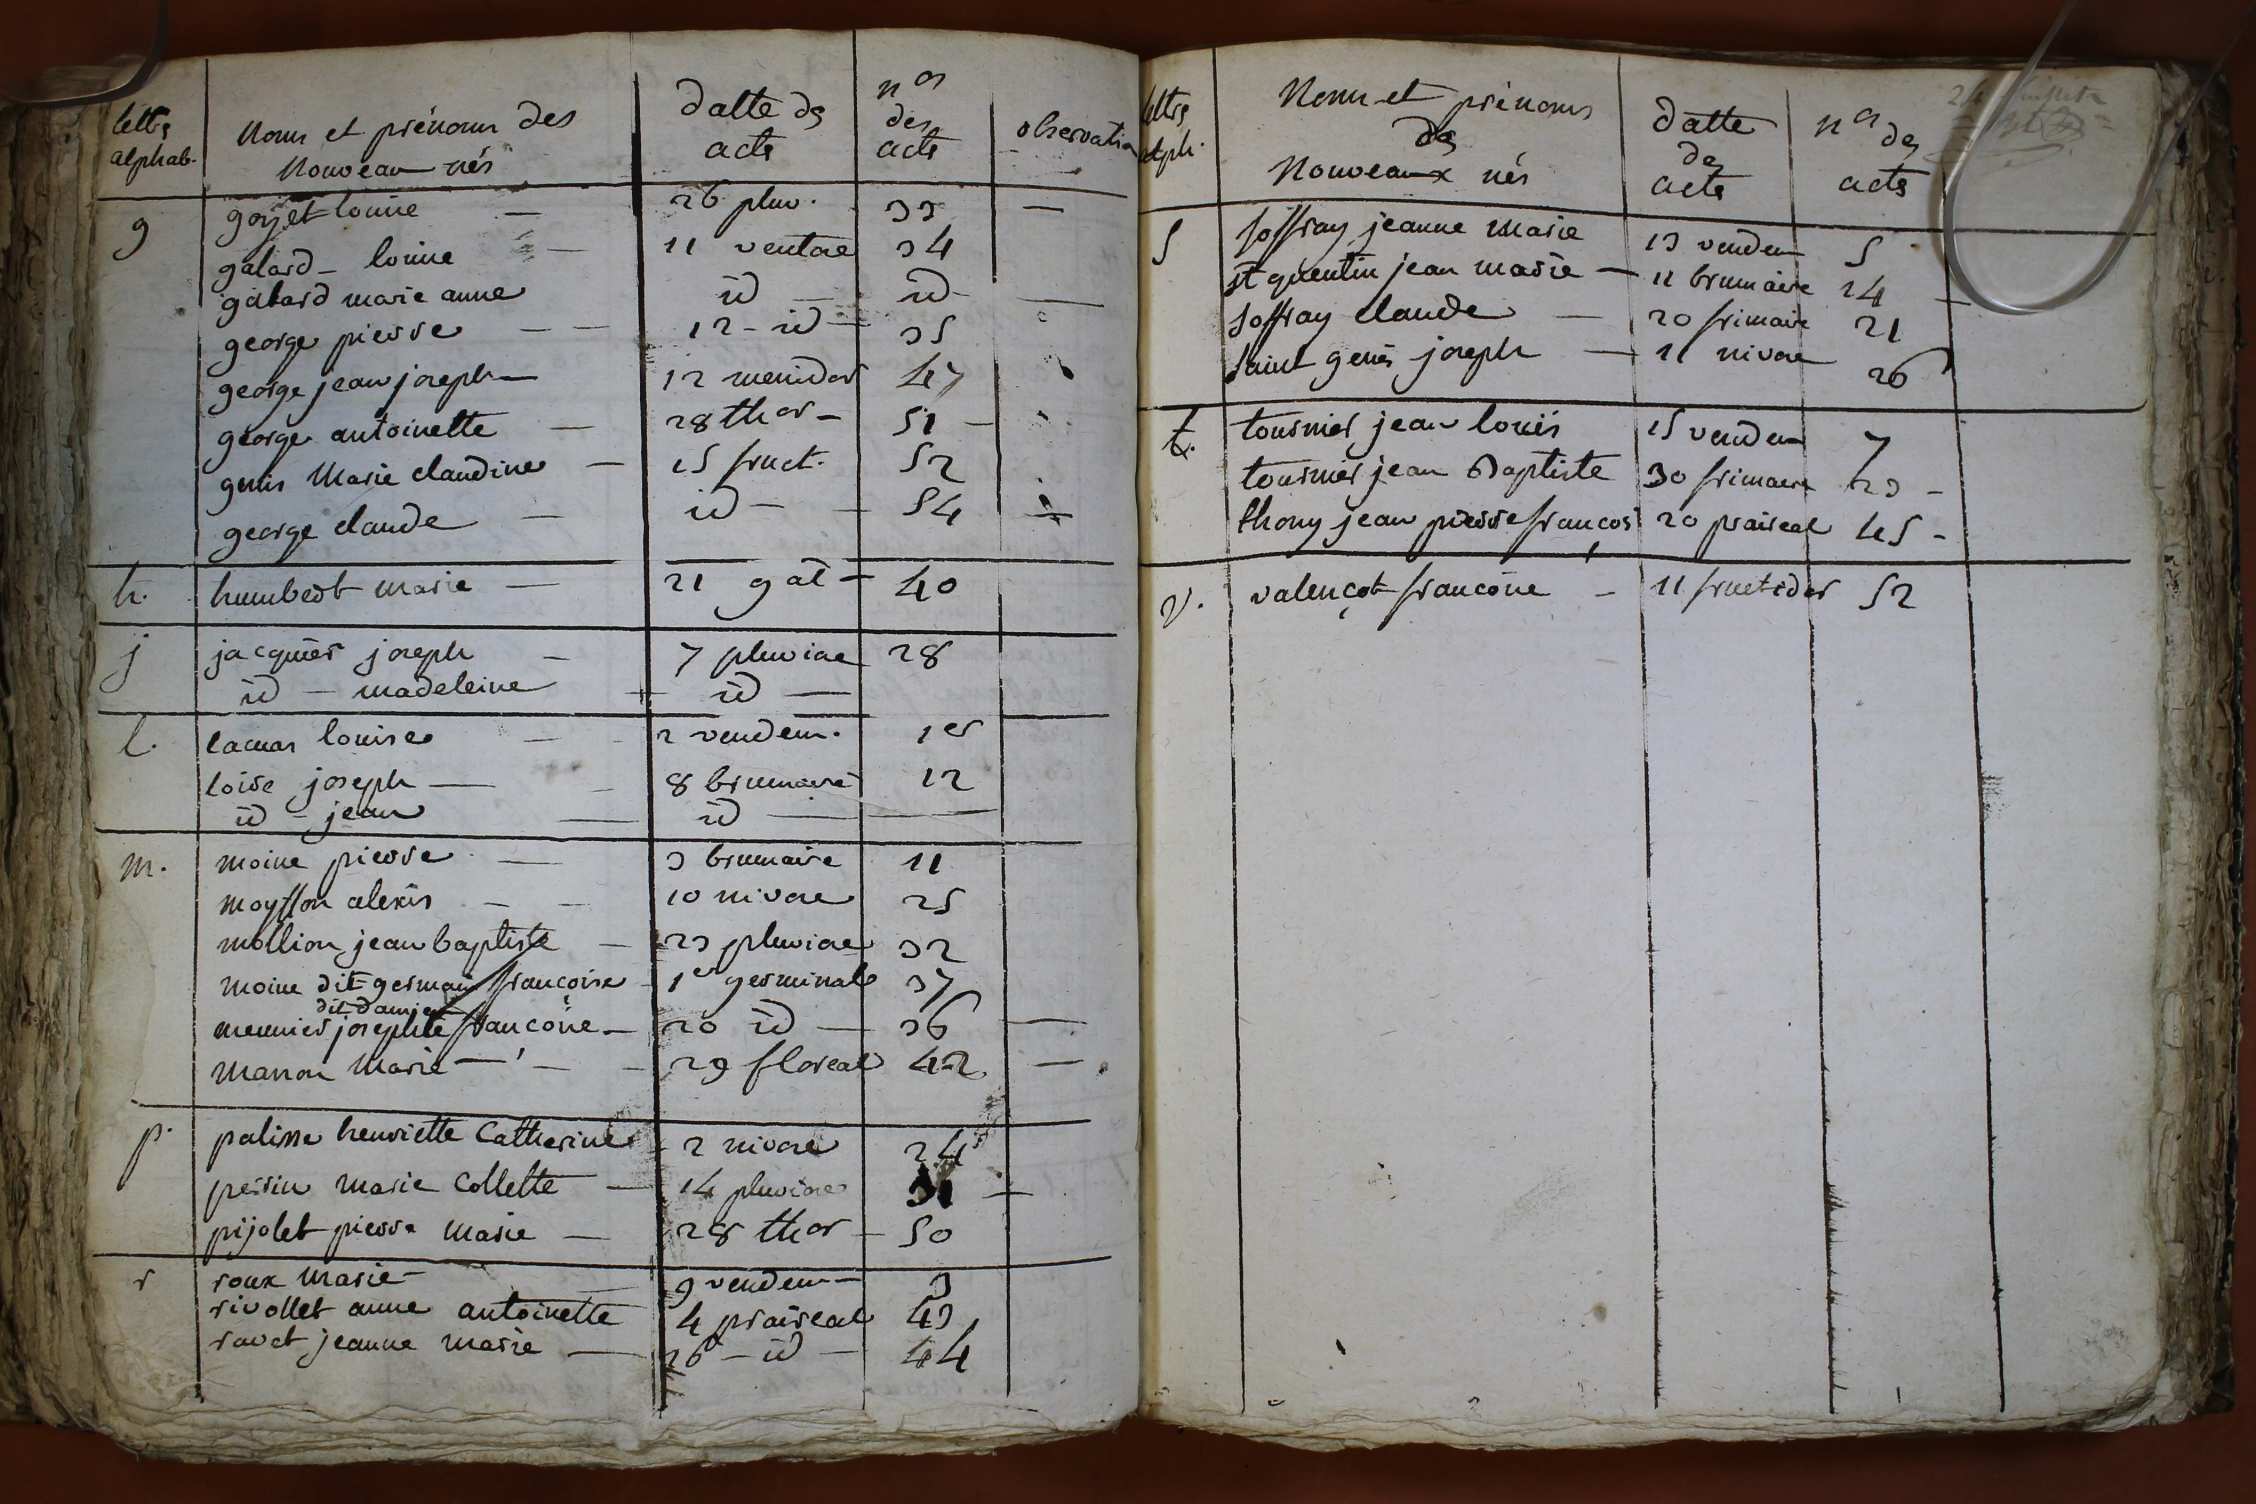 lettrs alphab.
Noms et prénoms des Nouveau nés
datte ds acts
nos des acts
observation
g goyet louise — 26 pluv. 33 —
galard — louise — 11 ventose 34
galard marie anne id — id —
george pierre — — 12 — id — 35
george jean joseph — 12 messidor 47
george antoinette — 28 ther — 51 —
genis Marie claudine — 15 fruct. 52
george claude — id — — 54 —
h. humbert marie — 21 gal — 40
j jacquier joseph — 7 pluviose 28
id — madeleine — id —
l. lacuas louise — — 2 vendem. 1er
loise joseph — — 8 brumaire 12
id — jean — id —
m. moine pierre — 3 brumaire 11
moysson alexis — — 10 nivose 25
mollion jean baptiste — 23 pluviose 32
moine dit germain françoise — 1er germinal 37
dit damien
meunier josephte françoise — 20 id — 36 —
manon Marie — — — 29 floreal 42 —
p. palisse henriette Catherine 2 nivose 24
perrin marie Collette — 14 pluviose 31 —
pijolet pierre marie — 28 ther — 50
r roux marie — 9 vendem — 3
rivollet anne antoinette 4 praireal 43
ravet jeanne marie — 26 — id — 44
lettrs alph.
Noms et prénoms ds Nouveaux nés
datte ds acte
nos ds acts
s soffray jeanne Marie 13 vendem 5
st quentin jean marie — 11 brumaire 14 —
soffray claude — 20 frimaire 21
saint genis joseph — 11 nivose 26
t. tournier jean louis 15 vendem 7
tournier jean Baptiste 30 frimaire 23 —
thony jean pierre françois 20 praireal 45 —
v. valençot françoise — 11 fructidor 52